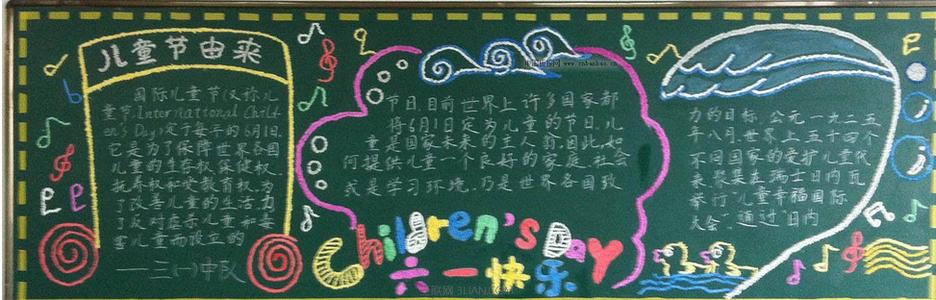 儿童节由来
国际儿童节(又称儿
童节,International Child
en's Day)定于每年的6月1日。
它是为了保障世界各国
儿童的生存权、保健权、
抚养权和受教育权,为
了改善儿童的生活,为
了反对虐杀儿童和毒
害儿童而设立的
——三(一)中队
节日目前世界上许多国家都
将6月1日定为儿童的节日。儿
童是国家未来的主人翁。因此,如
何提供儿童一个良好的家庭、社会
或是学习环境,乃是世界各国致
力的目标。公元一九二五
年八月,世界上五十四个
不同国家的爱护儿童代
表,聚集在瑞士日内瓦
举行"儿童幸福国际
大会",通过"日内
Children's Day
六一快乐